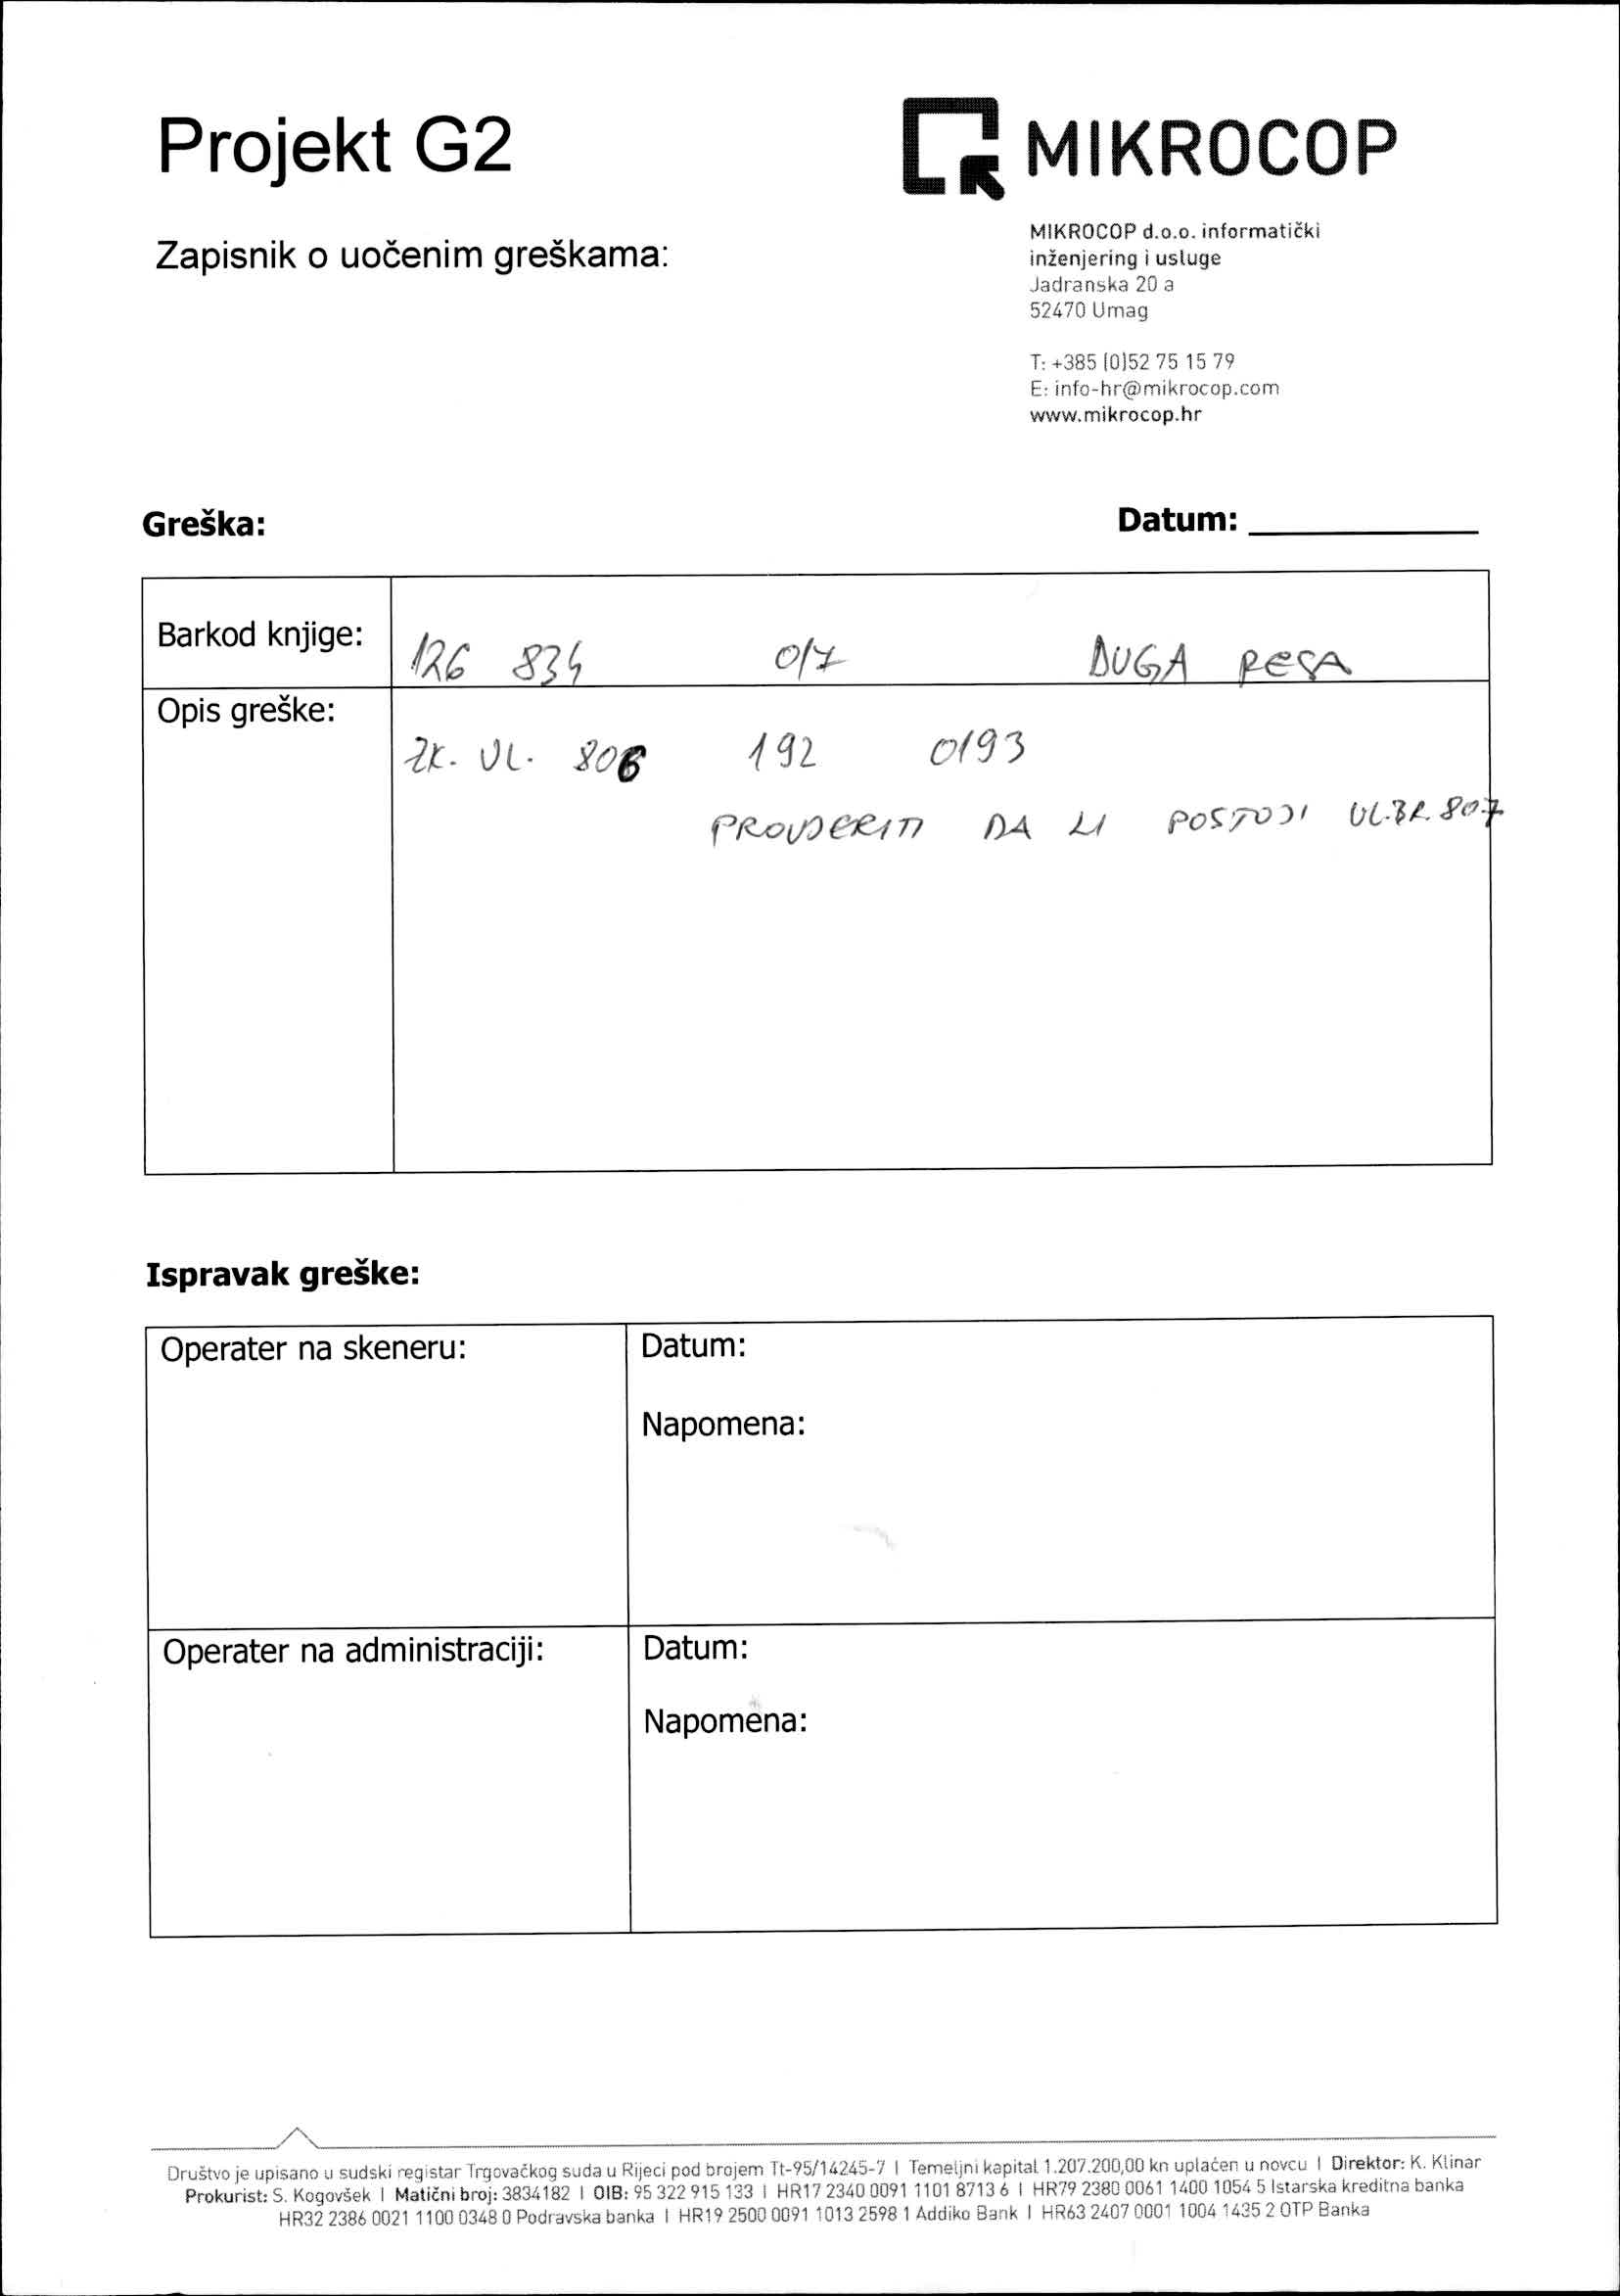 Projekt G2
MIKROCOP
Zapisnik o uočenim greškama:
MIKROCOP d.o.o. informatički
inženjering i usluge
Jadranska 20 a
52470 Umag
T: +385 (0)52 75 15 79
E: info-hr@mikrocop.com
www.mikrocop.hr
Greška:
Datum:
Barkod knjige:
126 834 0/7 DUGA RESA
Opis greške:
ZK. UL. 806 192 0193
PROVJERITI DA LI POSTOJI UL.BR. 807
Ispravak greške:
Operater na skeneru:
Datum:
Napomena:
Operater na administraciji:
Datum:
Napomena:
Društvo je upisano u sudski registar Trgovačkog suda u Rijeci pod brojem Tt-95/14245-7 | Temeljni kapital 1.207.200,00 kn uplaćen u novcu | Direktor: K. Klinar
Prokurist: S. Kogovšek | Matični broj: 3834182 | OIB: 95 322 915 133 | HR17 2340 0091 1101 8713 6 | HR79 2380 0061 1400 1054 5 Istarska kreditna banka
HR32 2386 0021 1100 0348 0 Podravska banka | HR19 2500 0091 1013 2598 1 Addiko Bank | HR63 2407 0001 1004 1435 2 OTP Banka